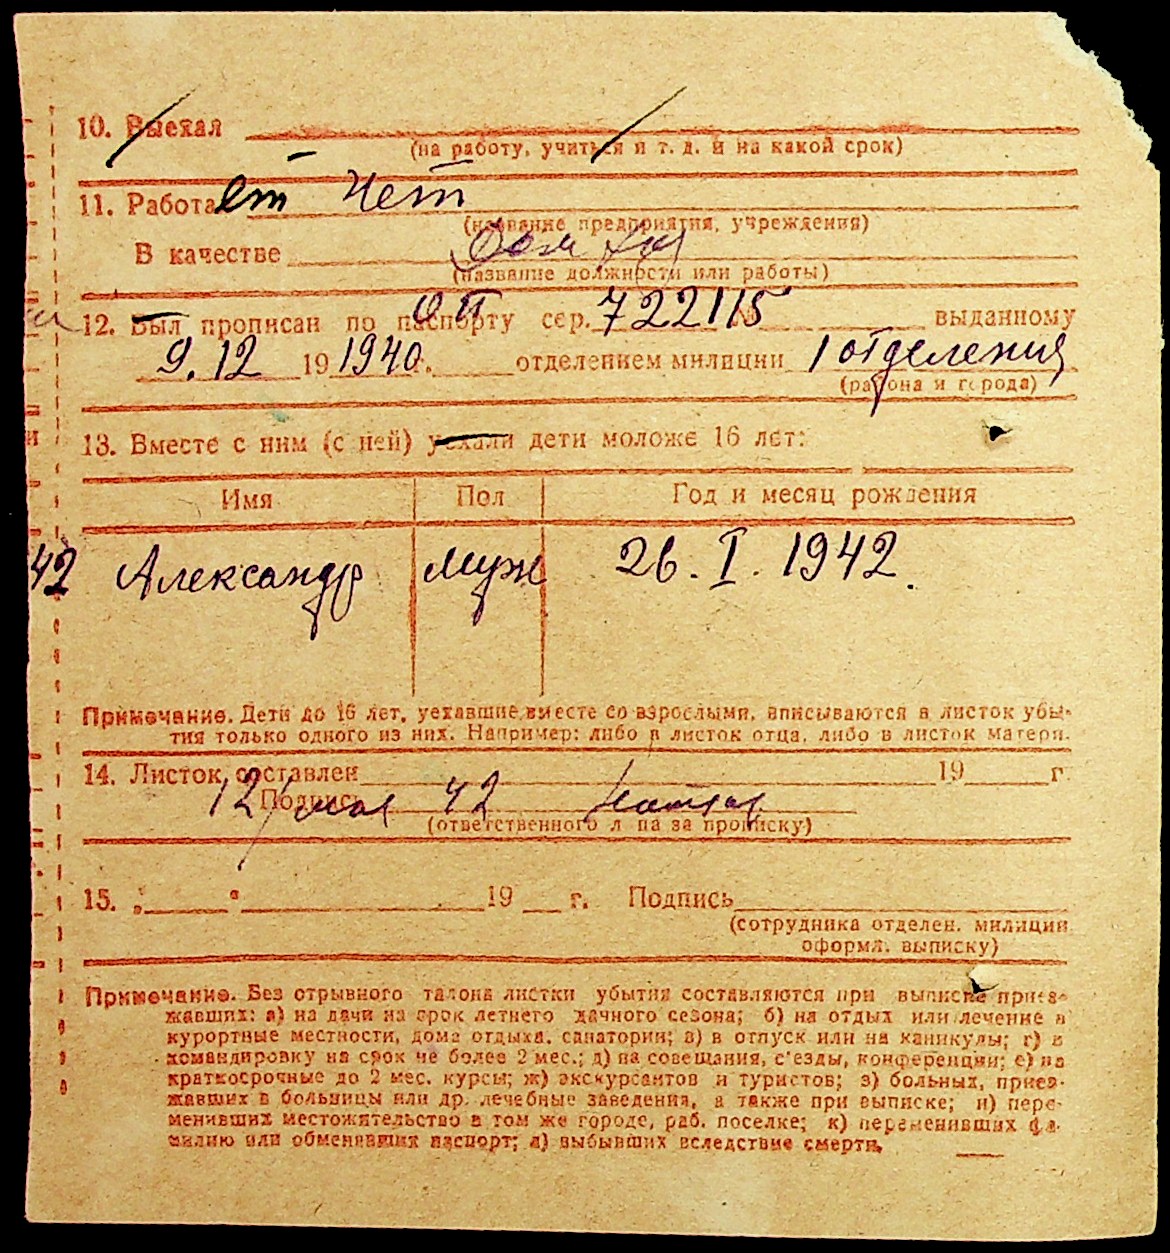 10. Выехал
(на работу, учиться и т. д. и на какой срок)
11. Работает Нет
(название предприятия, учреждения)
В качестве Дом хоз
(название должности или работы)
12. Был прописан по паспорту сер. 722115 № выданному
9. 12 19 1940 г. отделением милиции 1 отделения
(района и города)
13. Вместе с ним (с ней) уехали дети моложе 16 лет:
Имя Пол Год и месяц рождения
42 Александр муж 26. I. 1942.
Примечание. Дети до 16 лет, уехавшие вместе со взрослыми, вписываются в листок убы-
тия только одного из них. Например: либо в листок отца, либо в листок матери.
14. Листок составлен 19 г.
12/мая 42
Подпись
(ответственного лица за прописку)
15. „ “ 19 г. Подпись
(сотрудника отделен. милиции
оформл. выписку)
Примечание. Без отрывного талона листки убытия составляются при выписке приез-
жавших: а) на дачи на срок летнего дачного сезона; б) на отдых или лечение в
курортные местности, дома отдыха, санатории; в) в отпуск или на каникулы; г) в
командировку на срок не более 2 мес.; д) на совещания, с'езды, конференции; е) на
краткосрочные до 2 мес. курсы; ж) экскурсантов и туристов; з) больных, приез-
жавших в больницы или др. лечебные заведения, а также при выписке; и) пере-
менивших местожительство в том же городе, раб. поселке; к) переменивших фа-
милию или обменявших паспорт; л) выбывших вследствие смерти.